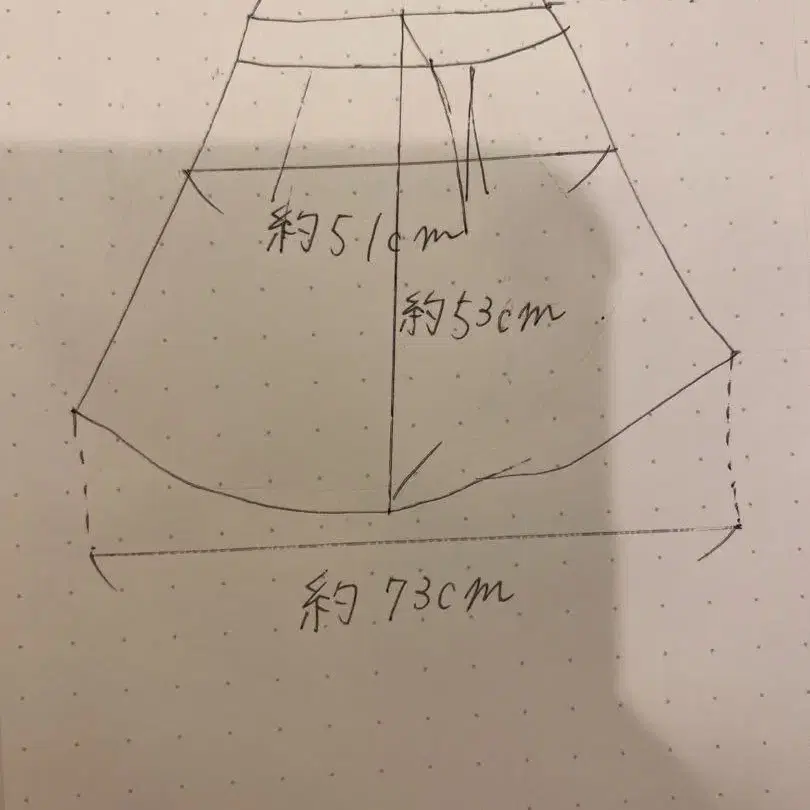 約51cm
約53cm
約73cm